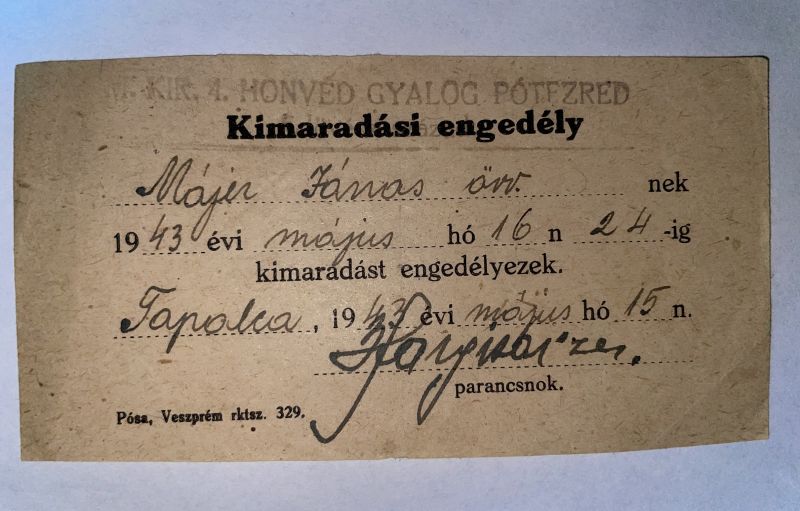 M. KIR. 4. HONVÉD GYALOG PÓTEZRED
Kimaradási engedély
Májer János örv. nek
1943 évi május hó 16 n 24 -ig
kimaradást engedélyezek.
Tapolca, 1943 évi május hó 15 n.
parancsnok.
Pósa, Veszprém rktsz. 329.